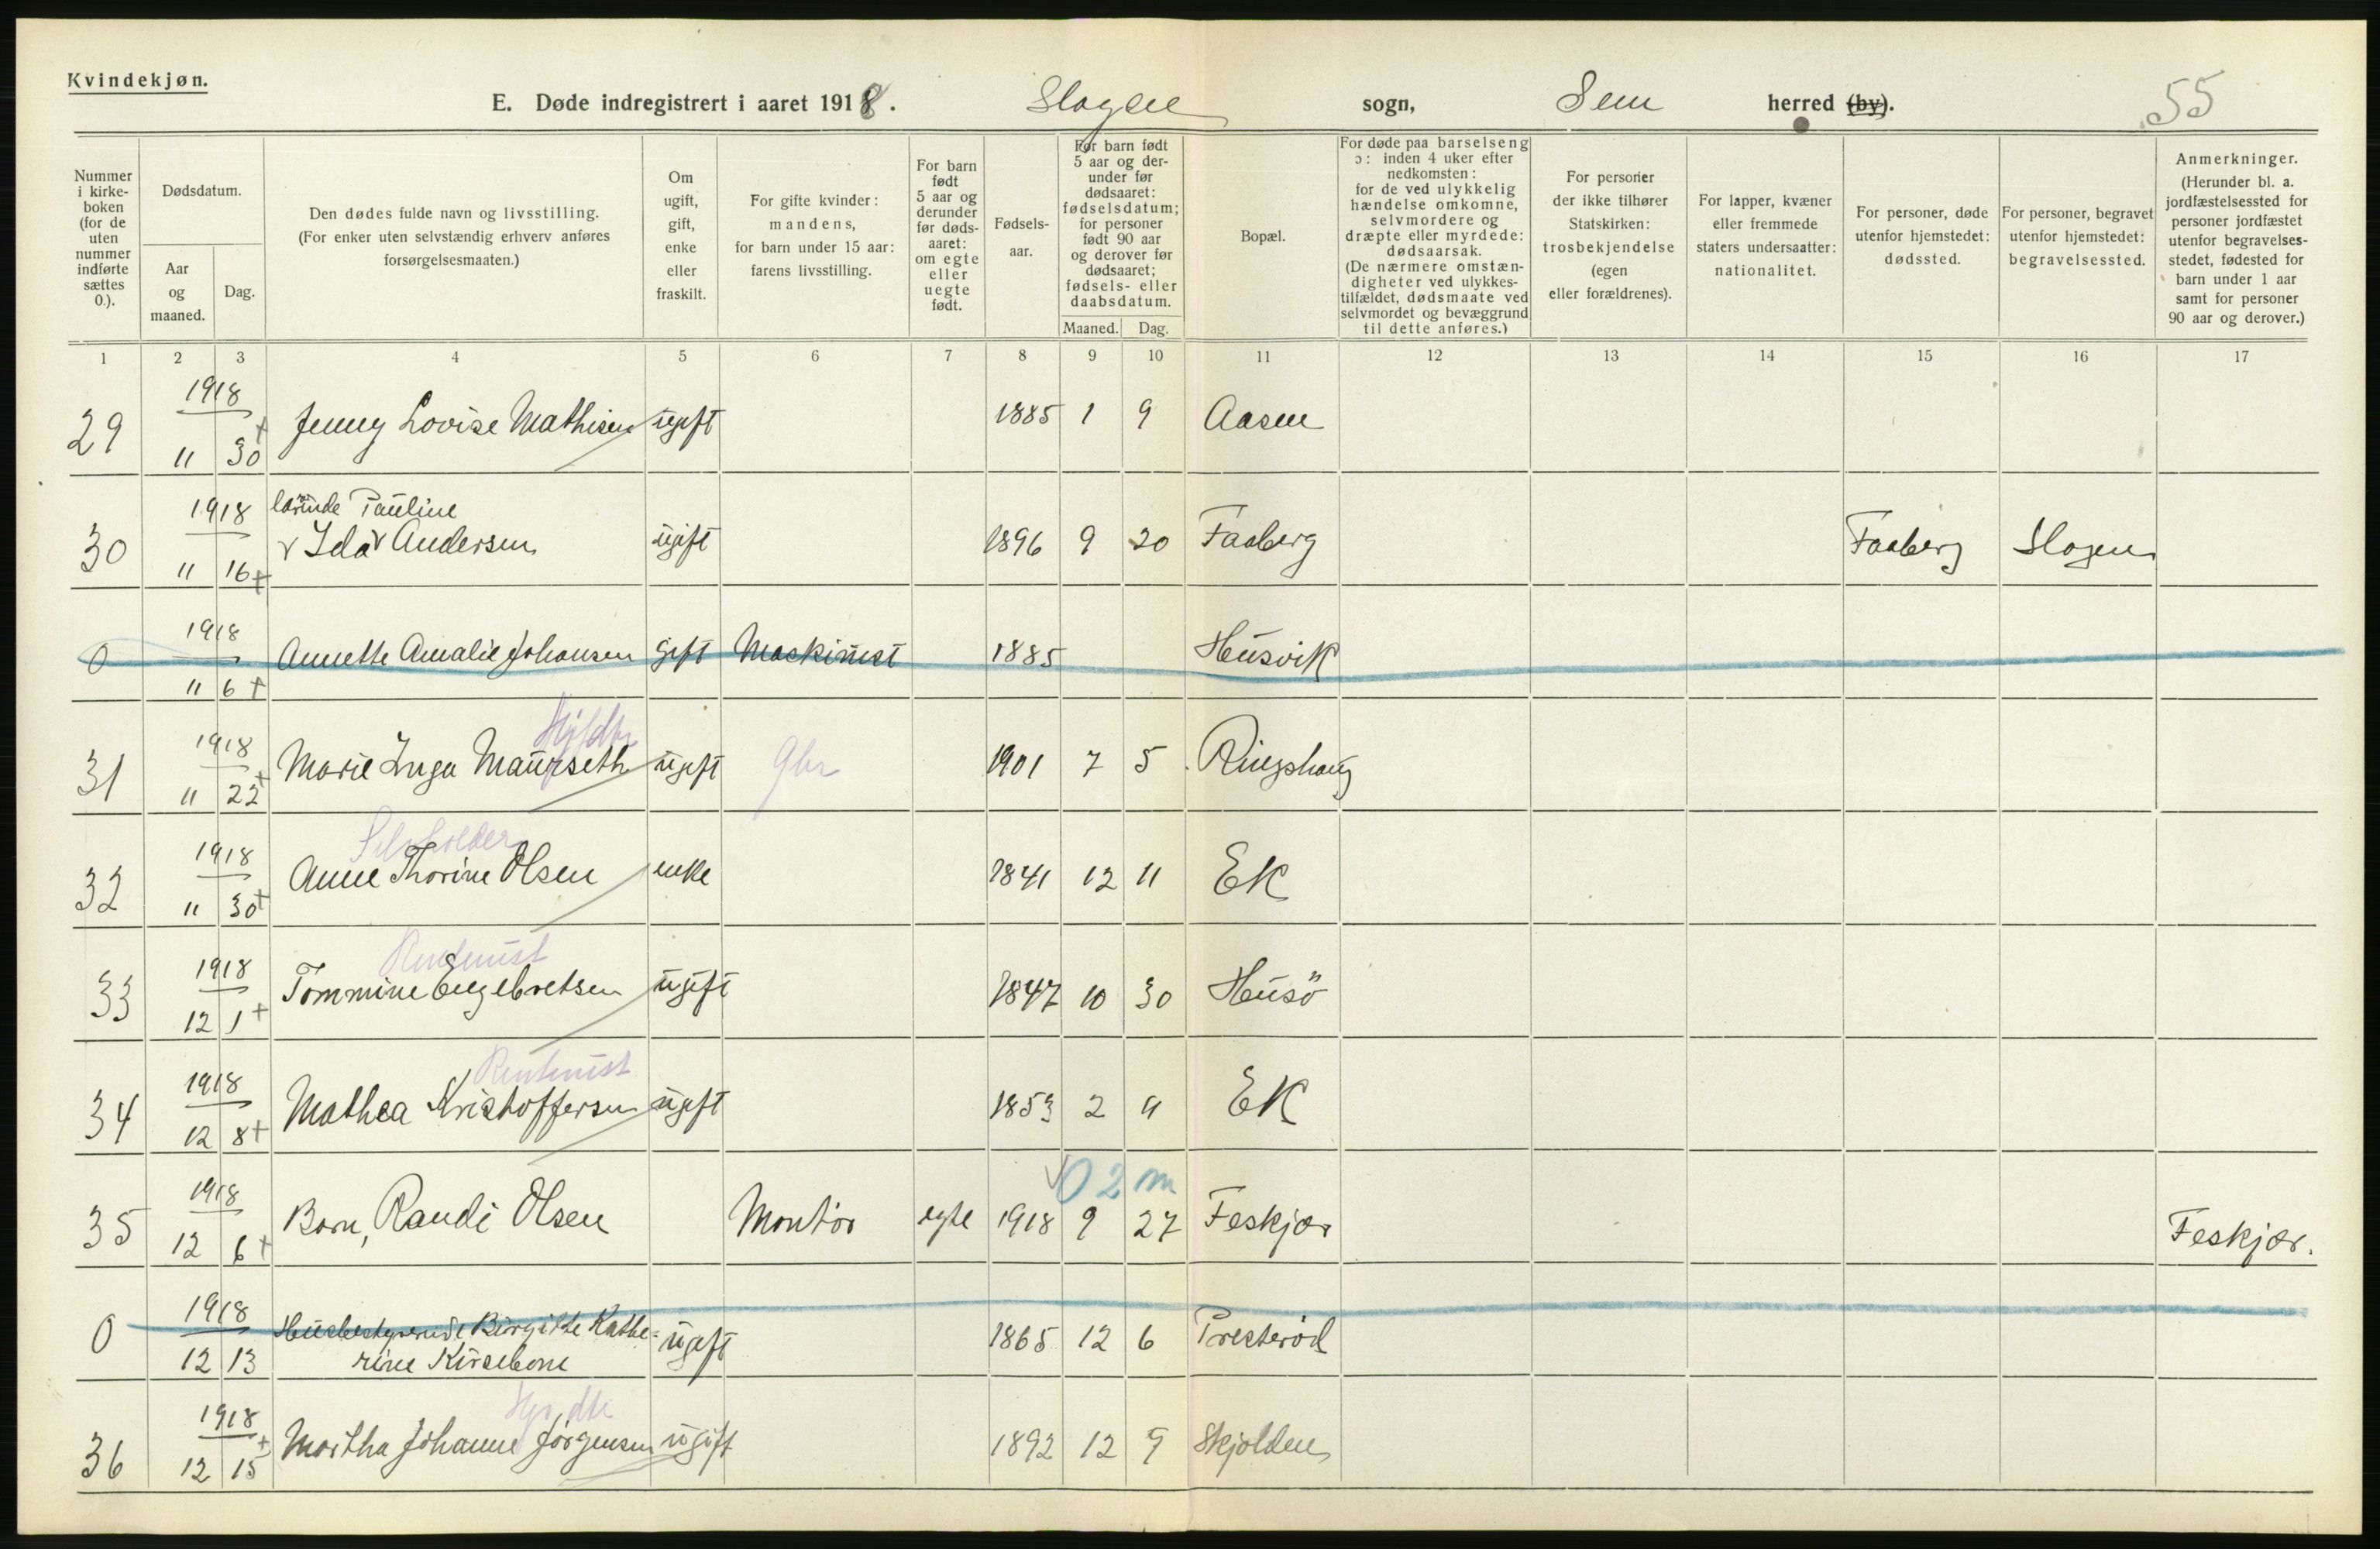 Kvindekjøn.
E. Døde indregistrert i aaret 1918. Slagen sogn, Sem herred (by). 55
Nummer i kirkeboken (for de uten nummer indførte sættes 0.).
Dødsdatum.
Aar og maaned.
Dag.
Den dødes fulde navn og livsstilling.
(For enker uten selvstændig erhverv anføres forsørgelsesmaaten.)
Om ugift, gift, enke eller fraskilt.
For gifte kvinder: mandens, for barn under 15 aar: farens livsstilling.
For barn født 5 aar og derunder før dødsaaret: om egte eller uegte født.
Fødselsaar.
For barn født 5 aar og derunder før dødsaaret: fødselsdatum; for personer født 90 aar og derover før dødsaaret; fødsels- eller daabsdatum.
Maaned. Dag.
Bopæl.
For døde paa barselseng ɔ: inden 4 uker efter nedkomsten: for de ved ulykkelig hændelse omkomne, selvmordere og dræpte eller myrdede: dødsaarsak. (De nærmere omstændigheter ved ulykkestilfældet, dødsmaate ved selvmordet og bevæggrund til dette anføres.)
For personer der ikke tilhører Statskirken: trosbekjendelse (egen eller forældrenes).
For lapper, kvæner eller fremmede staters undersaatter: nationalitet.
For personer, døde utenfor hjemstedet: dødssted.
For personer, begravet utenfor hjemstedet: begravelsessted.
Anmerkninger. (Herunder bl. a. jordfæstelsessted for personer jordfæstet utenfor begravelsesstedet, fødested for barn under 1 aar samt for personer 90 aar og derover.)
1 2 3 4 5 6 7 8 9 10 11 12 13 14 15 16 17
1918
29 11 30 Jenny Lovise Mathisen ugift 1885 1 9 Aasen
1918 Pauline
30 11 16 Ida Andersen ugift 1896 9 20 Faaberg Faaberg Slagen
1918
0 11 6 Annette Amalie Johansen gift Maskinist 1885 Husvik
1918
31 11 22 Marie Inga Maurseth ugift 1901 7 5 Ringshaug
1918
32 11 30 Anne Thorine Olsen enke 1841 12 11 Ek
1918 Rentenist
33 12 1 Tommine Engelbretsen ugift 1847 10 30 Husö
1918 Rentenist
34 12 8 Mathea Kristoffersen ugift 1853 2 Ek
1918 0 2 m
35 12 6 Barn, Randi Olsen Montör egte 1918 9 27 Feskjær Feskjær.
1918
0 12 13 Husbestyrerinde Birgitte Kathe=
rine Kirsebom ugift 1865 12 6 Presterød
1918
36 12 15 Martha Johanne Jørgensen ugift 1892 12 9 Skjolden